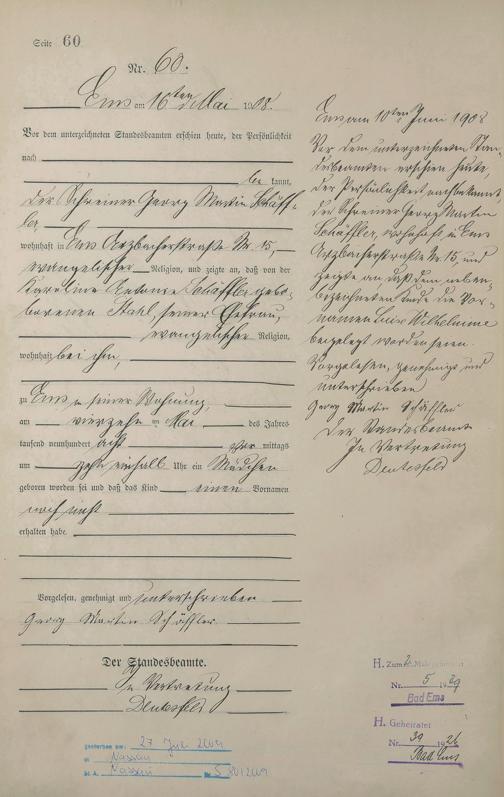 Seite 60
Nr. 60.
Ems am 16ten Mai 1908.
Vor dem unterzeichneten Standesbeamten erschien heute, der Persönlichkeit
nach
be kannt,
der Schreiner Georg Martin Schäff-
ler,
wohnhaft in Ems Arzbacherstraße Nr. 15,
evangelischer Religion, und zeigte an, daß von der
Karoline Antonie Schäffler gebo-
borenen Stahl, seiner Ehefrau,
evangelischer Religion,
wohnhaft bei ihm,
zu Ems in seiner Wohnung,
am vierzehn ten Mai des Jahres
tausend neunhundert acht vor mittags
um zehn einhalb Uhr ein Mädchen
geboren worden sei und daß das Kind einen Vornamen
noch nicht
erhalten habe.
Vorgelesen, genehmigt und unterschrieben
Georg Martin Schäffler
Der Standesbeamte.
In Vertretung
gestorben am: 27 Juli 2009
in Nassau
St. A. Nassau Nr. 5
Ems am 10ten Juni 1908
Vor dem unterzeichneten Stan-
desbeamten erschien heute,
der Persönlichkeit nach bekannt,
der Schreiner Georg Martin
Schäffler, wohnhaft in Ems
Arzbacherstraße Nr. 15, und
zeigte an, daß dem neben-
bezeichneten Kinde die Vor-
namen Luise Wilhelmine
beigelegt worden seien.
Vorgelesen, genehmigt und
unterschrieben
Georg Martin Schäffler
Der Standesbeamte
In Vertretung
H. Zum 2. Mal
Nr. 5 1939
Bad Ems
H. Geheiratet
Nr. 39 1926
Bad Ems